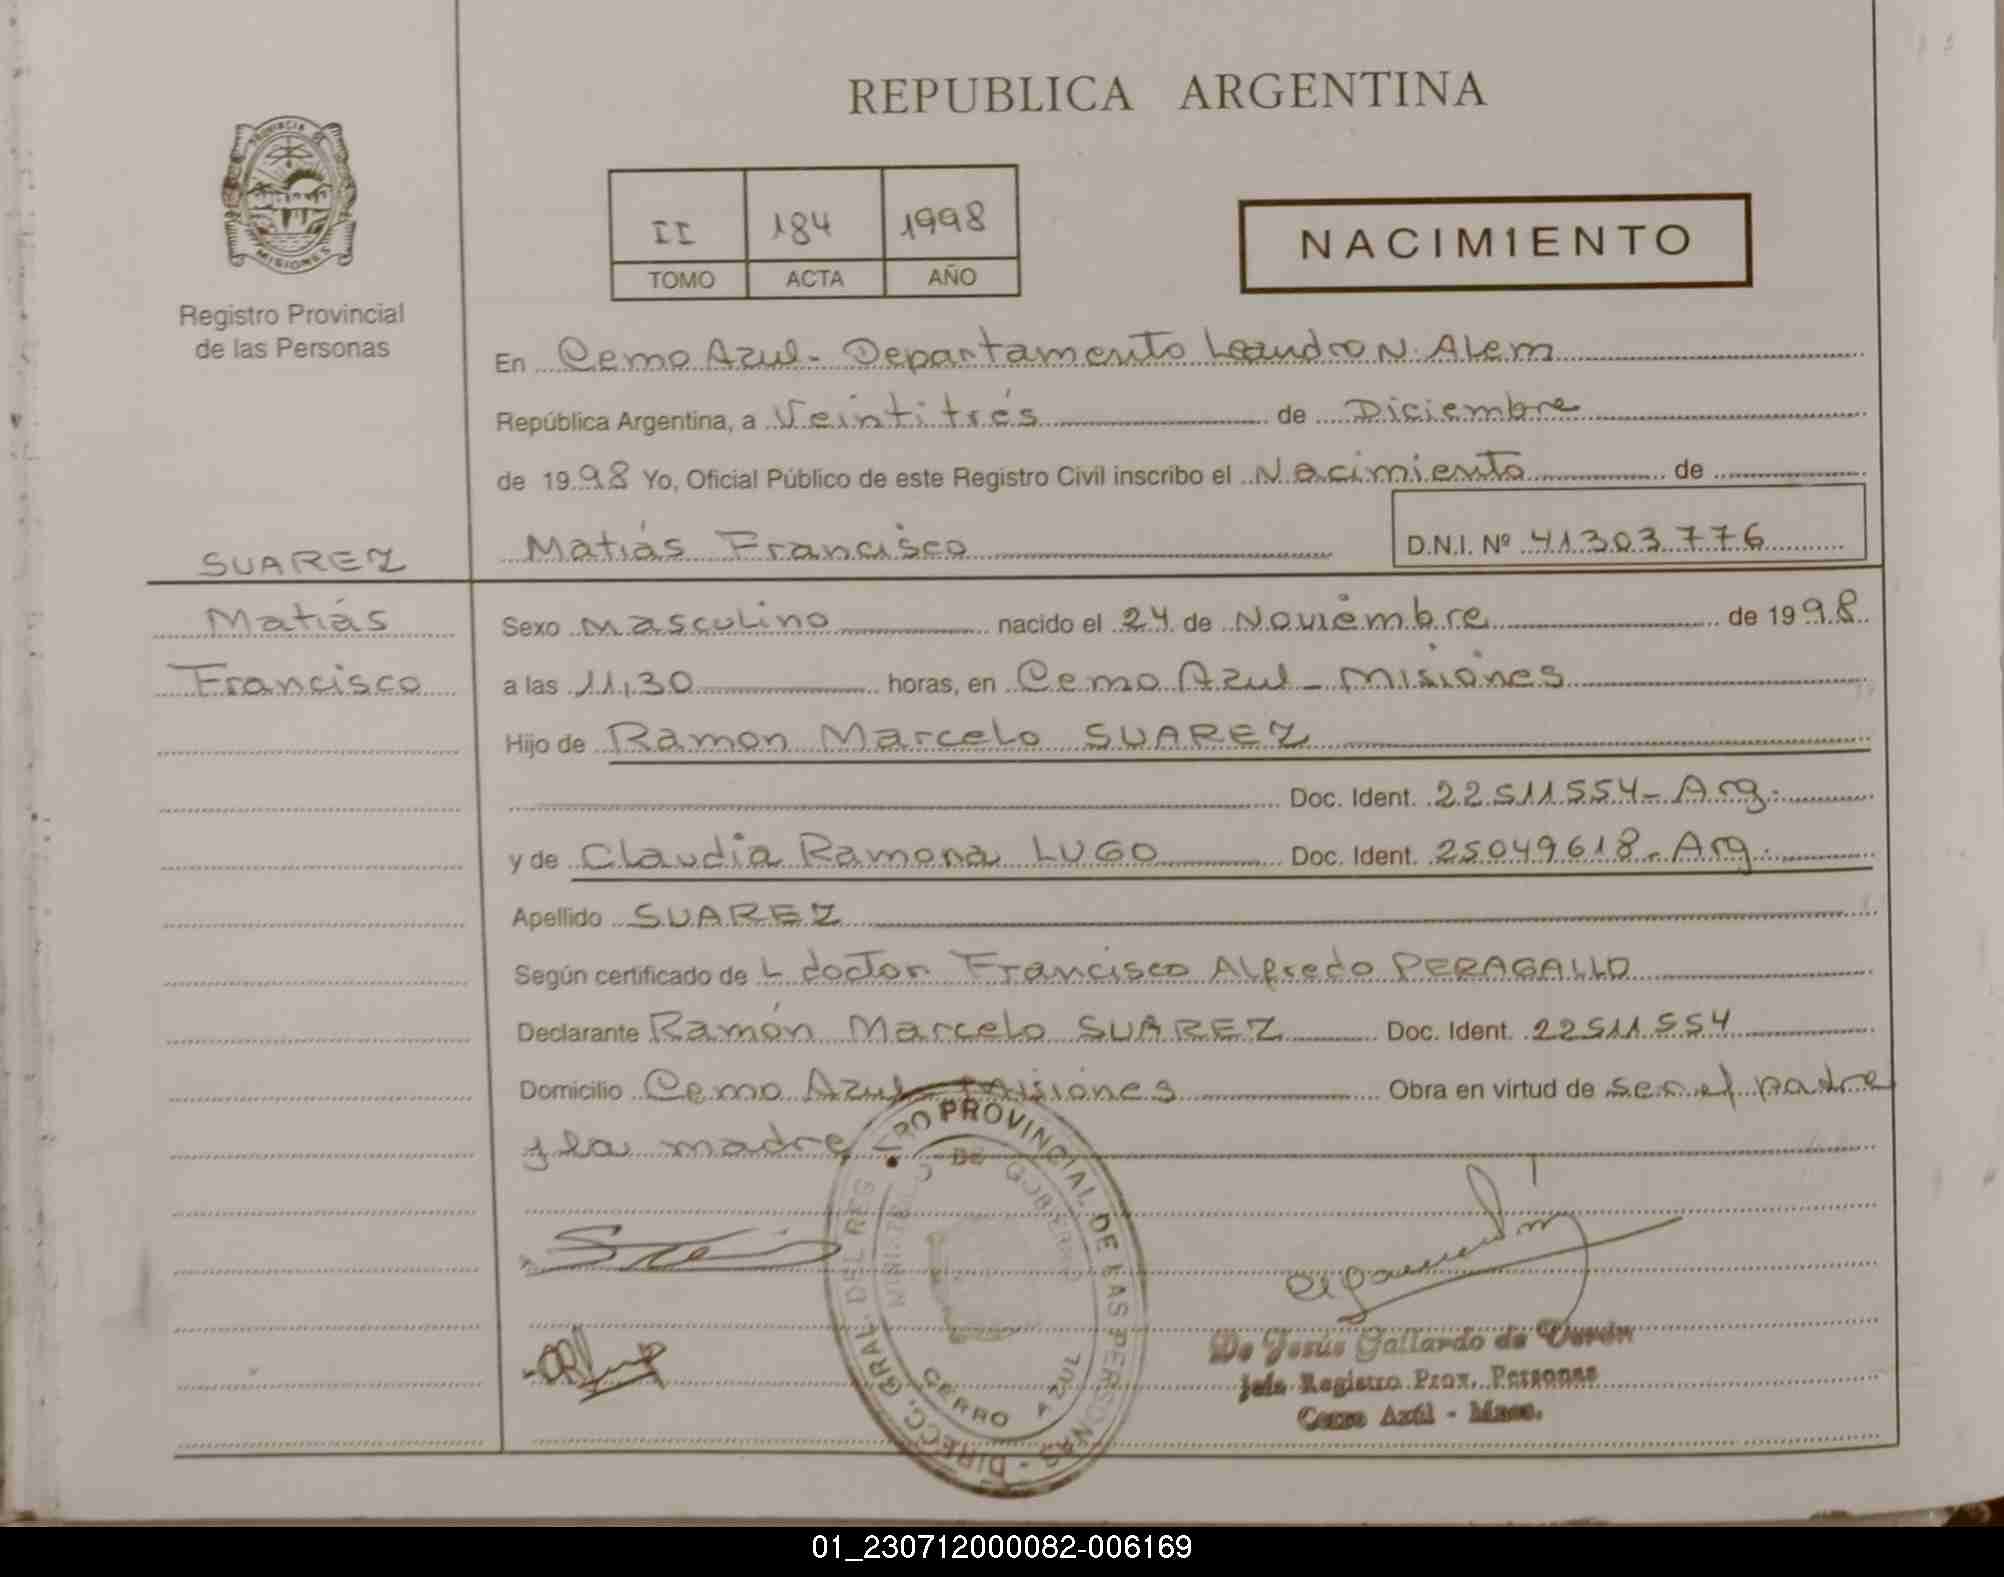 REPUBLICA ARGENTINA
PROVINCIA DE
MISIONES
Registro Provincial
de las Personas
II 184 1998
TOMO ACTA AÑO
NACIMIENTO
En Cerro Azul - Departamento Leandro N. Alem
República Argentina, a Veintitrés de Diciembre
de 1998 Yo, Oficial Público de este Registro Civil inscribo el Nacimiento de
Matías Francisco D.N.I. Nº 41303776
SUAREZ
Matías
Francisco
Sexo Masculino nacido el 24 de Noviembre de 1998
a las 11,30 horas, en Cerro Azul - Misiones
Hijo de Ramon Marcelo SUAREZ
Doc. Ident. 22511554 - Arg.
y de Claudia Ramona LUGO Doc. Ident. 25049618 - Arg.
Apellido SUAREZ
Según certificado de L doctor Francisco Alfredo PERAGALLO
Declarante Ramón Marcelo SUAREZ Doc. Ident. 22511554
Domicilio Cerro Azul - Misiones Obra en virtud de ser el padre
y la madre
DIRECC. GRAL. DEL REGISTRO PROVINCIAL DE LAS PERSONAS
MINISTERIO DE GOBIERNO
CERRO AZUL
De Jesús Gallardo de Verón
Jefe Registro Prov. Personas
Cerro Azul - Mnes.
01_230712000082-006169